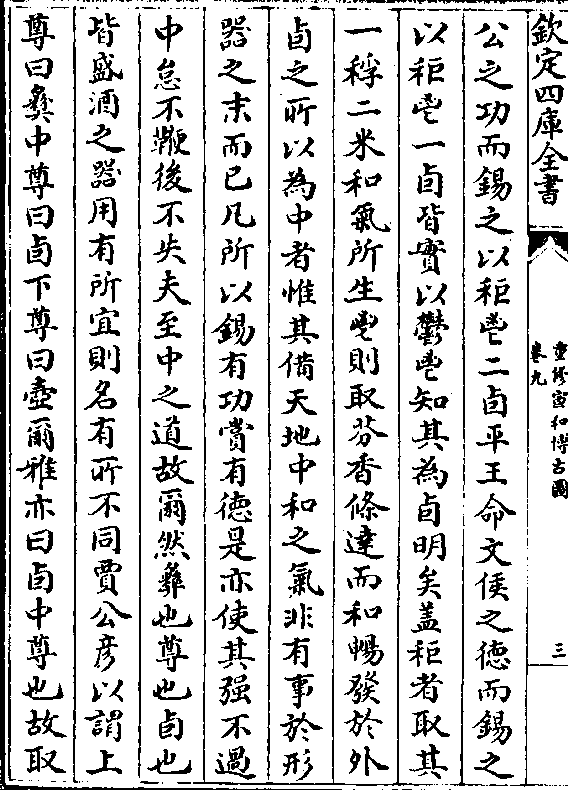 欽定四庫全書
重修宣和博古圖
卷九
三
公之功而錫之以秬鬯二卣平王命文侯之德而錫之
以秬鬯一卣皆實以鬱鬯知其為卣明矣蓋秬者取其
一稃二米和氣所生鬯則取芬香條達而和暢發於外
卣之所以為中者惟其備天地中和之氣非有事於形
器之末而已凡所以錫有功賞有德是亦使其强不過
中怠不鞭後不失夫至中之道故爾然彝也尊也卣也
皆盛酒之器用有所宜則名有所不同賈公彦以謂上
尊曰彝中尊曰卣下尊曰壺爾雅亦曰卣中尊也故取